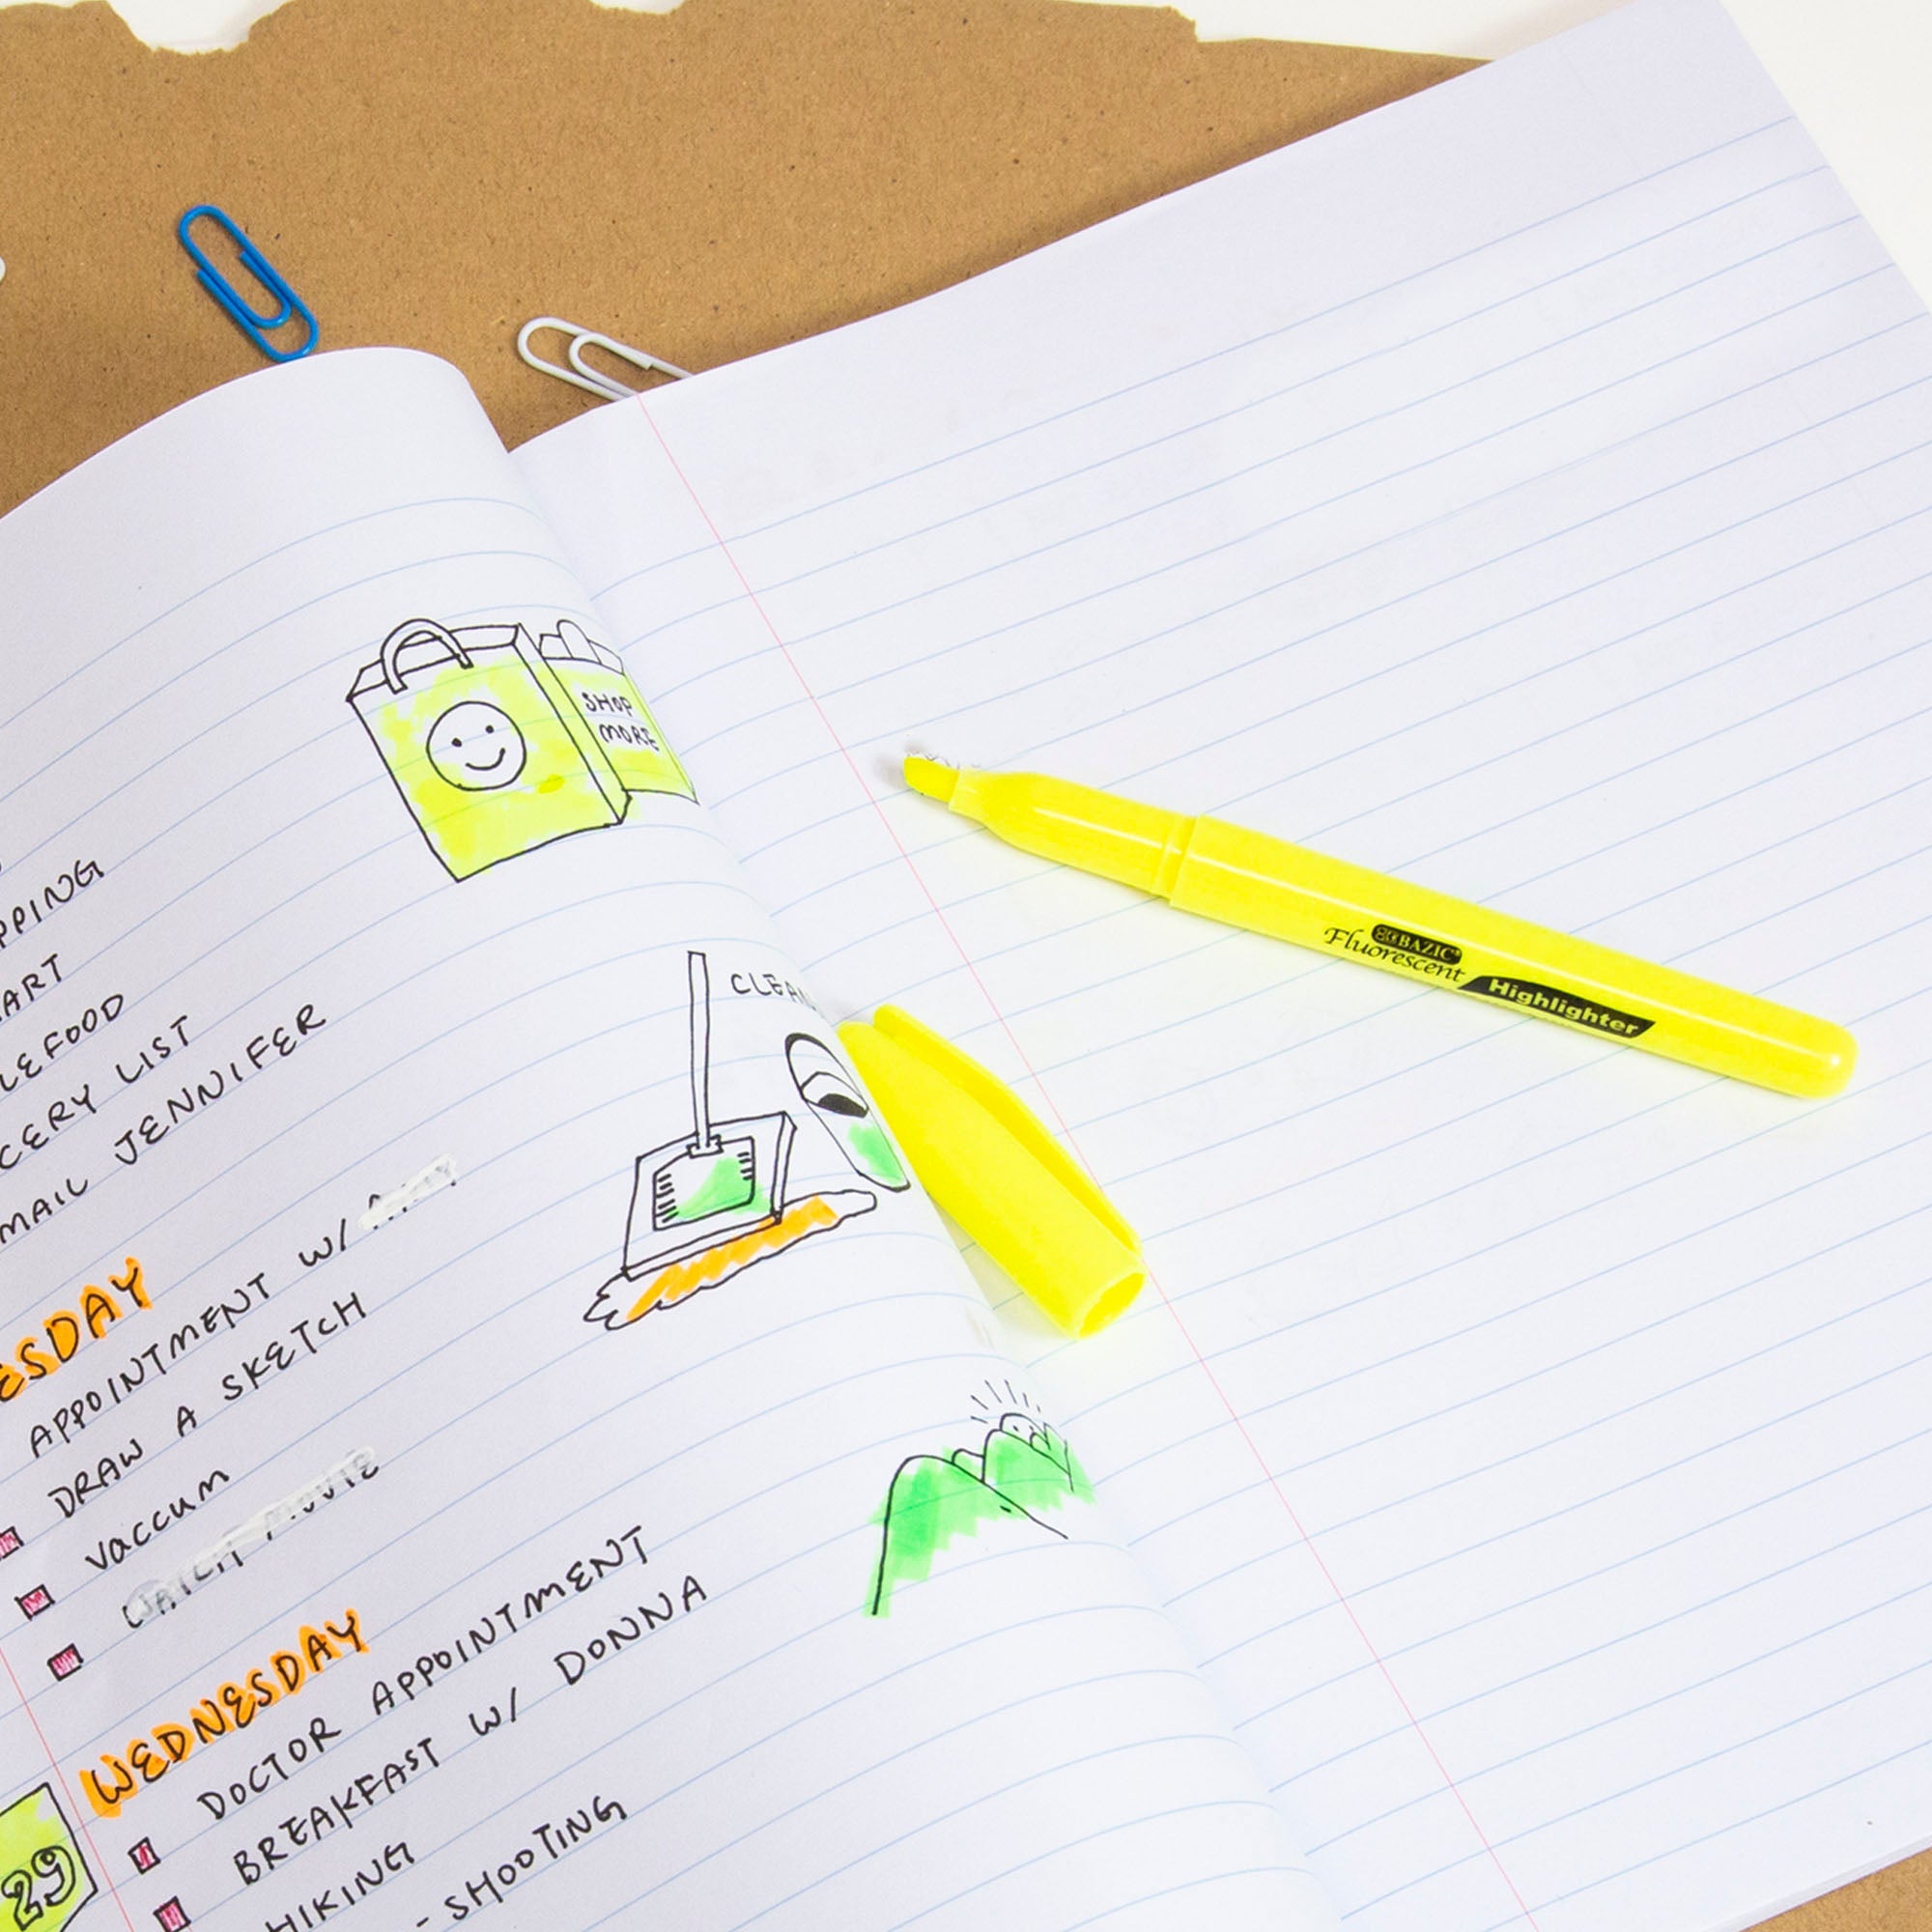 PPING
ART
LEFOOD
CERY LIST
MAIL JENNIFER
SHOP
MORE
CLEAN
ESDAY
APPOINTMENT W/
DRAW A SKETCH
VACCUM
WATCH MOVIE
WEDNESDAY
29
DOCTOR APPOINTMENT
BREAKFAST W/ DONNA
HIKING
- SHOOTING
BAZIC®
Fluorescent
Highlighter